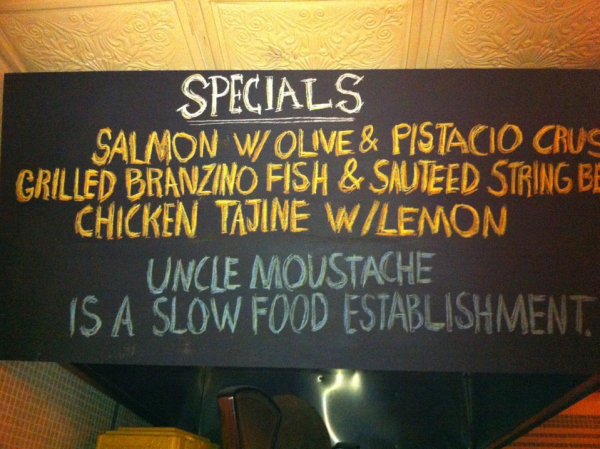 SPECIALS
SALMON W/ OLIVE & PISTACIO CRUS
GRILLED BRANZINO FISH & SAUTEED STRING BE
CHICKEN TAJINE W/LEMON
UNCLE MOUSTACHE
IS A SLOW FOOD ESTABLISHMENT.